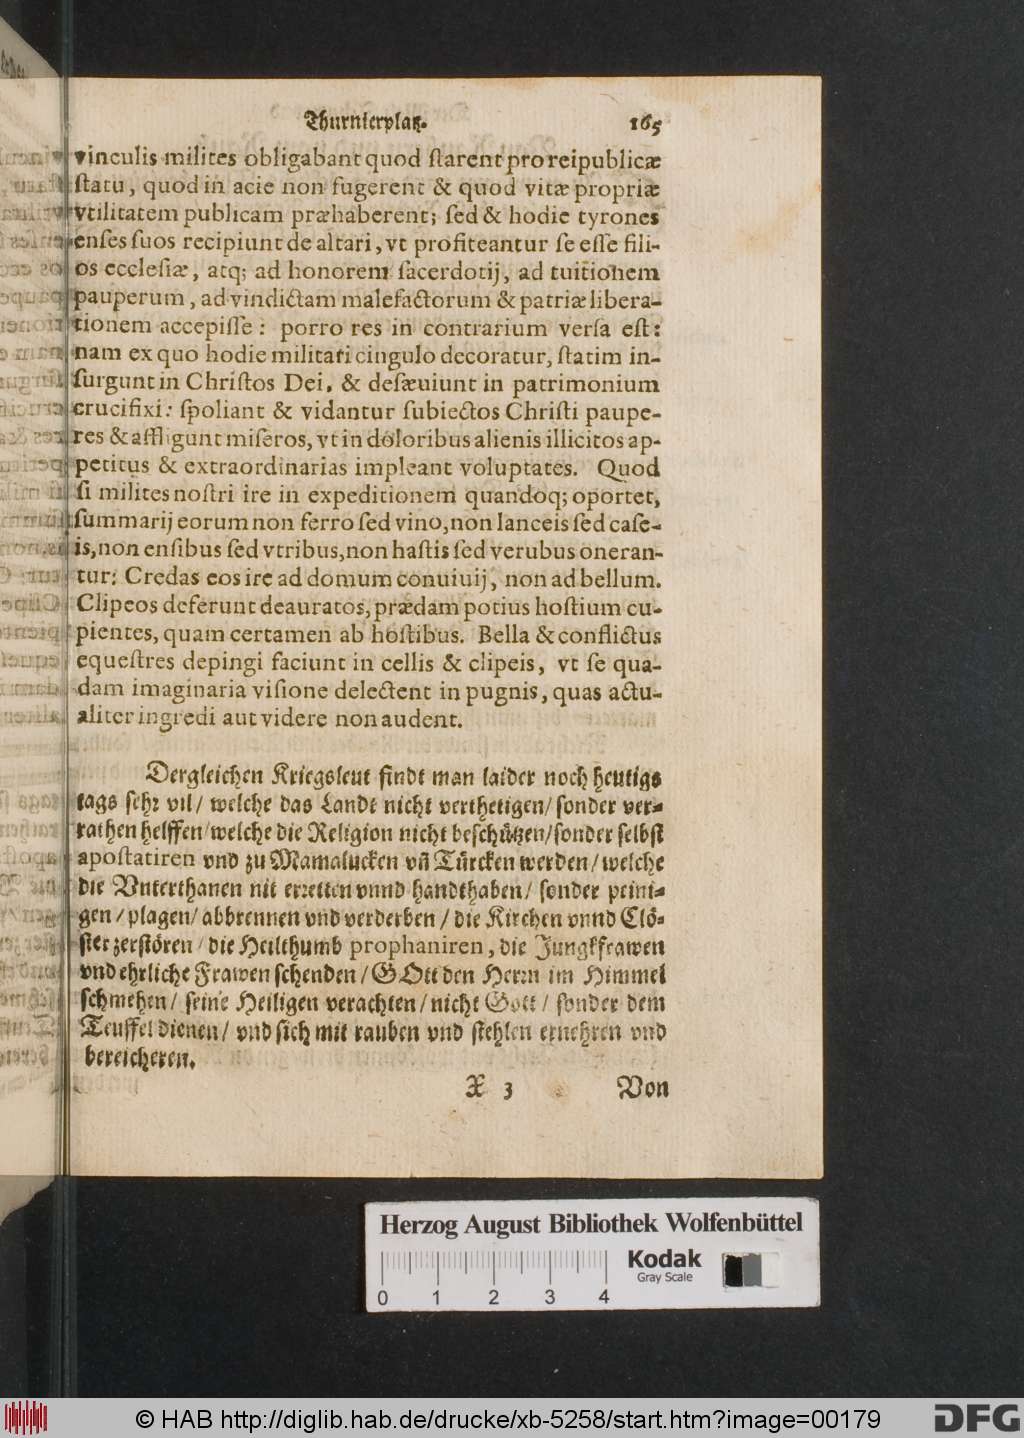 Thurnierplatz. 165
vinculis milites obligabant quod ſtarent pro reipublicæ
ſtatu, quod in acie non fugerent & quod vitæ propriæ
vtilitatem publicam præhaberent; ſed & hodie tyrones
enſes ſuos recipiunt de altari, vt profiteantur ſe eſſe fili-
os eccleſiæ, atq; ad honorem ſacerdotij, ad tuitionem
pauperum, ad vindictam malefactorum & patriæ libera-
tionem accepiſſe: porro res in contrarium verſa eſt:
nam ex quo hodie militari cingulo decoratur, ſtatim in-
ſurgunt in Chriſtos Dei, & deſæuiunt in patrimonium
crucifixi: ſpoliant & vidantur ſubiectos Chriſti paupe-
res & affligunt miſeros, vt in doloribus alienis illicitos ap-
petitus & extraordinarias impleant voluptates. Quod
ſi milites noſtri ire in expeditionem quandoq; oportet,
ſummarij eorum non ferro ſed vino, non lanceis ſed caſe-
is, non enſibus ſed vtribus, non haſtis ſed verubus oneran-
tur: Credas eos ire ad domum conuiuij, non ad bellum.
Clipeos deferunt deauratos, prædam potius hoſtium cu-
pientes, quam certamen ab hoſtibus. Bella & conflictus
equeſtres depingi faciunt in cellis & clipeis, vt ſe qua-
dam imaginaria viſione delectent in pugnis, quas actu-
aliter ingredi aut videre non audent.
Dergleichen Kriegsleut findt man laider noch heutigs
tags ſehr vil/ welche das Landt nicht verthetigen/ ſonder ver-
rathen helffen/ welche die Religion nicht beſchützen/ ſonder ſelbſt
apoſtatiren vnd zu Mamalucken vñ Türcken werden/ welche
die Vnterthanen nit erretten vnnd handthaben/ ſonder peini-
gen/ plagen/ abbrennen vnd verderben/ die Kirchen vnnd Clö-
ſter zerſtören/ die Heilthumb prophaniren, die Jungkfrawen
vnd ehrliche Frawen ſchenden/ GOtt den Herrn im Himmel
ſchmehen/ ſeine Heiligen verachten/ nicht Gott/ ſonder dem
Teuffel dienen/ vnd ſich mit rauben vnd ſtehlen ernehren vnd
bereicheren.
X 3 Von
Herzog August Bibliothek Wolfenbüttel
Kodak
Gray Scale
0 1 2 3 4
© HAB http://diglib.hab.de/drucke/xb-5258/start.htm?image=00179
DFG